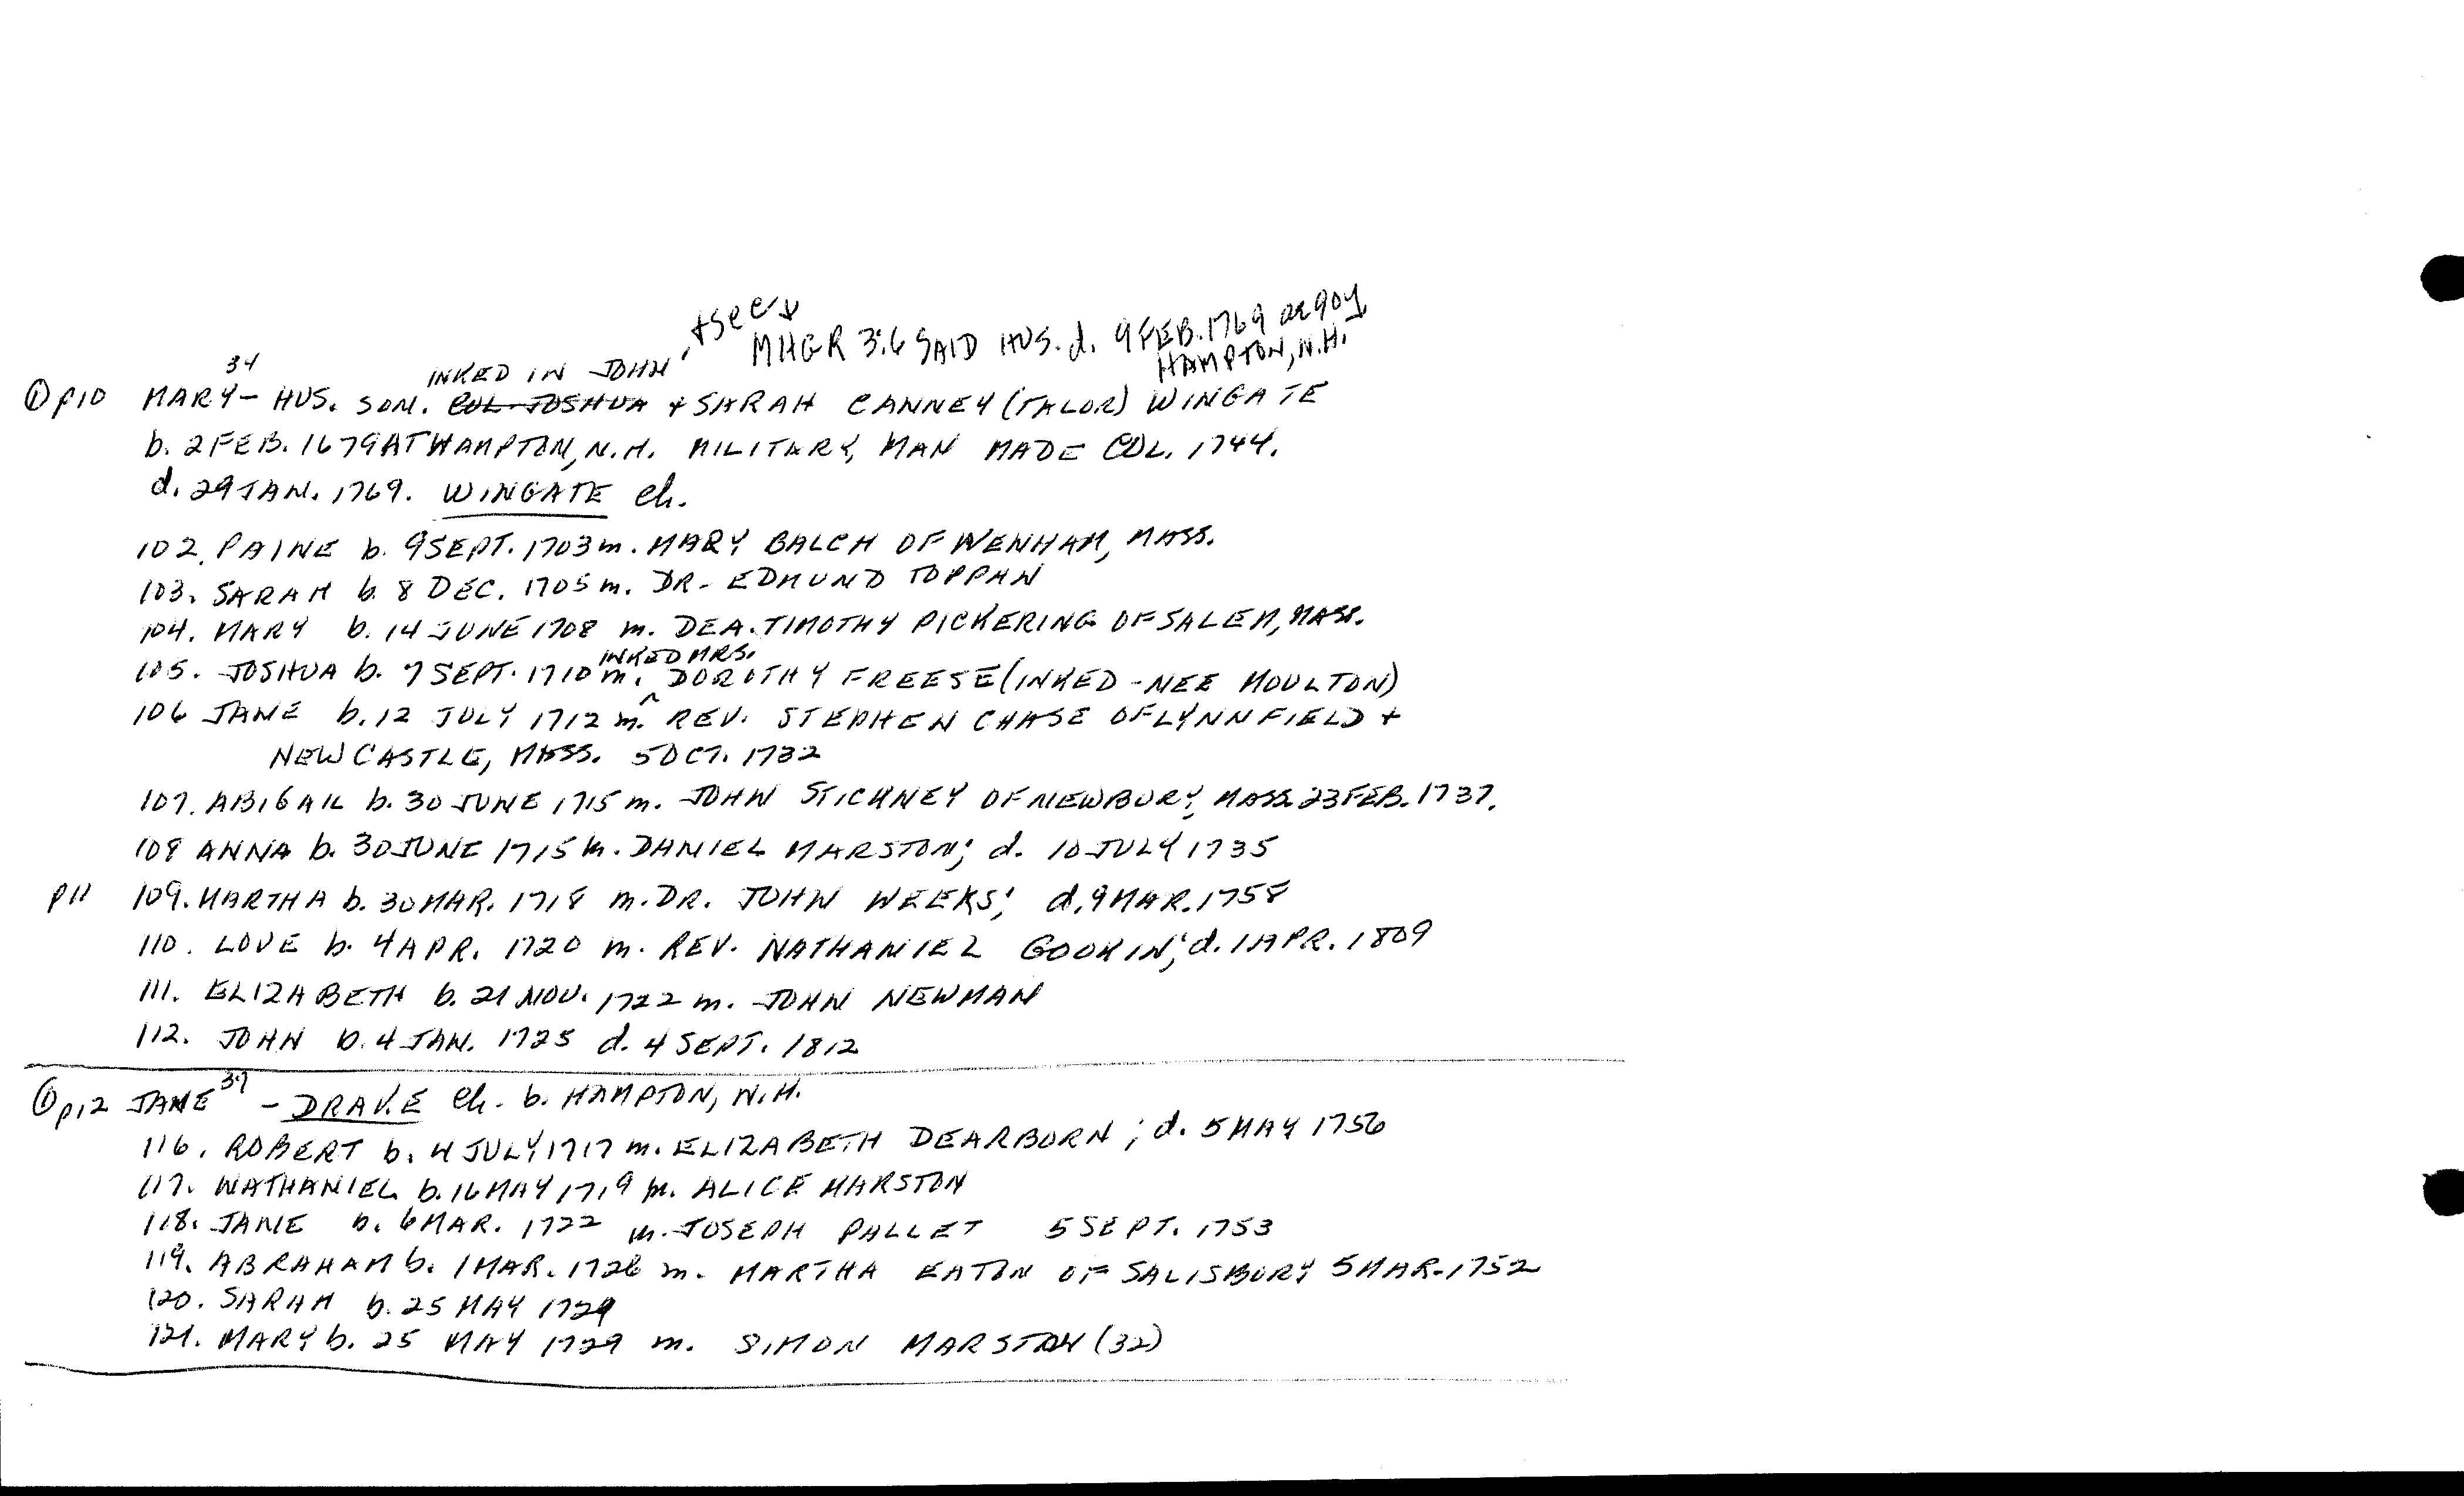 +SEE↓
MHGR 3:6 SAID HUS. d. 9 FEB. 1769 ae 90y
HAMPTON, N.H.
34
INKED IN JOHN
① p10 MARY - HUS. SON. COL. JOSHUA + SARAH CANNEY (TALOR) WINGATE
b. 2 FEB. 1679 AT HAMPTON, N.H. MILITARY MAN MADE COL. 1744.
d. 29 JAN. 1769. WINGATE ch.
102. PAINE b. 9 SEPT. 1703 m. MARY BALCH OF WENHAM, MASS.
103. SARAH b. 8 DEC. 1705 m. DR. EDMUND TOPPAN
104. MARY b. 14 JUNE 1708 m. DEA. TIMOTHY PICKERING OF SALEM, MASS.
INKED MRS.
105. JOSHUA b. 7 SEPT. 1710 m. ^ DOROTHY FREESE (INKED - NEE MOULTON)
106 JANE b. 12 JULY 1712 m. REV. STEPHEN CHASE OF LYNNFIELD +
NEWCASTLE, MASS. 5 OCT. 1732
107. ABIGAIL b. 30 JUNE 1715 m. JOHN STICKNEY OF NEWBURY, MASS. 23 FEB. 1737.
108 ANNA b. 30 JUNE 1715 m. DANIEL MARSTON; d. 10 JULY 1735
p11 109. MARTHA b. 30 MAR. 1718 m. DR. JOHN WEEKS; d. 9 MAR. 1758
110. LOVE b. 4 APR. 1720 m. REV. NATHANIEL GOOKIN; d. 1 APR. 1809
111. ELIZABETH b. 21 NOV. 1722 m. JOHN NEWMAN
112. JOHN b. 4 JAN. 1725 d. 4 SEPT. 1812
① p12 JANE 37 - DRAKE ch. b. HAMPTON, N.H.
116. ROBERT b. 4 JULY 1717 m. ELIZABETH DEARBORN; d. 5 MAY 1756
117. NATHANIEL b. 16 MAY 1719 m. ALICE MARSTON
118. JANE b. 6 MAR. 1722 m. JOSEPH PALLET 5 SEPT. 1753
119. ABRAHAM b. 1 MAR. 1726 m. MARTHA EATON OF SALISBURY 5 MAR. 1752
120. SARAH b. 25 MAY 1729
121. MARY b. 25 MAY 1729 m. SIMON MARSTON (32)